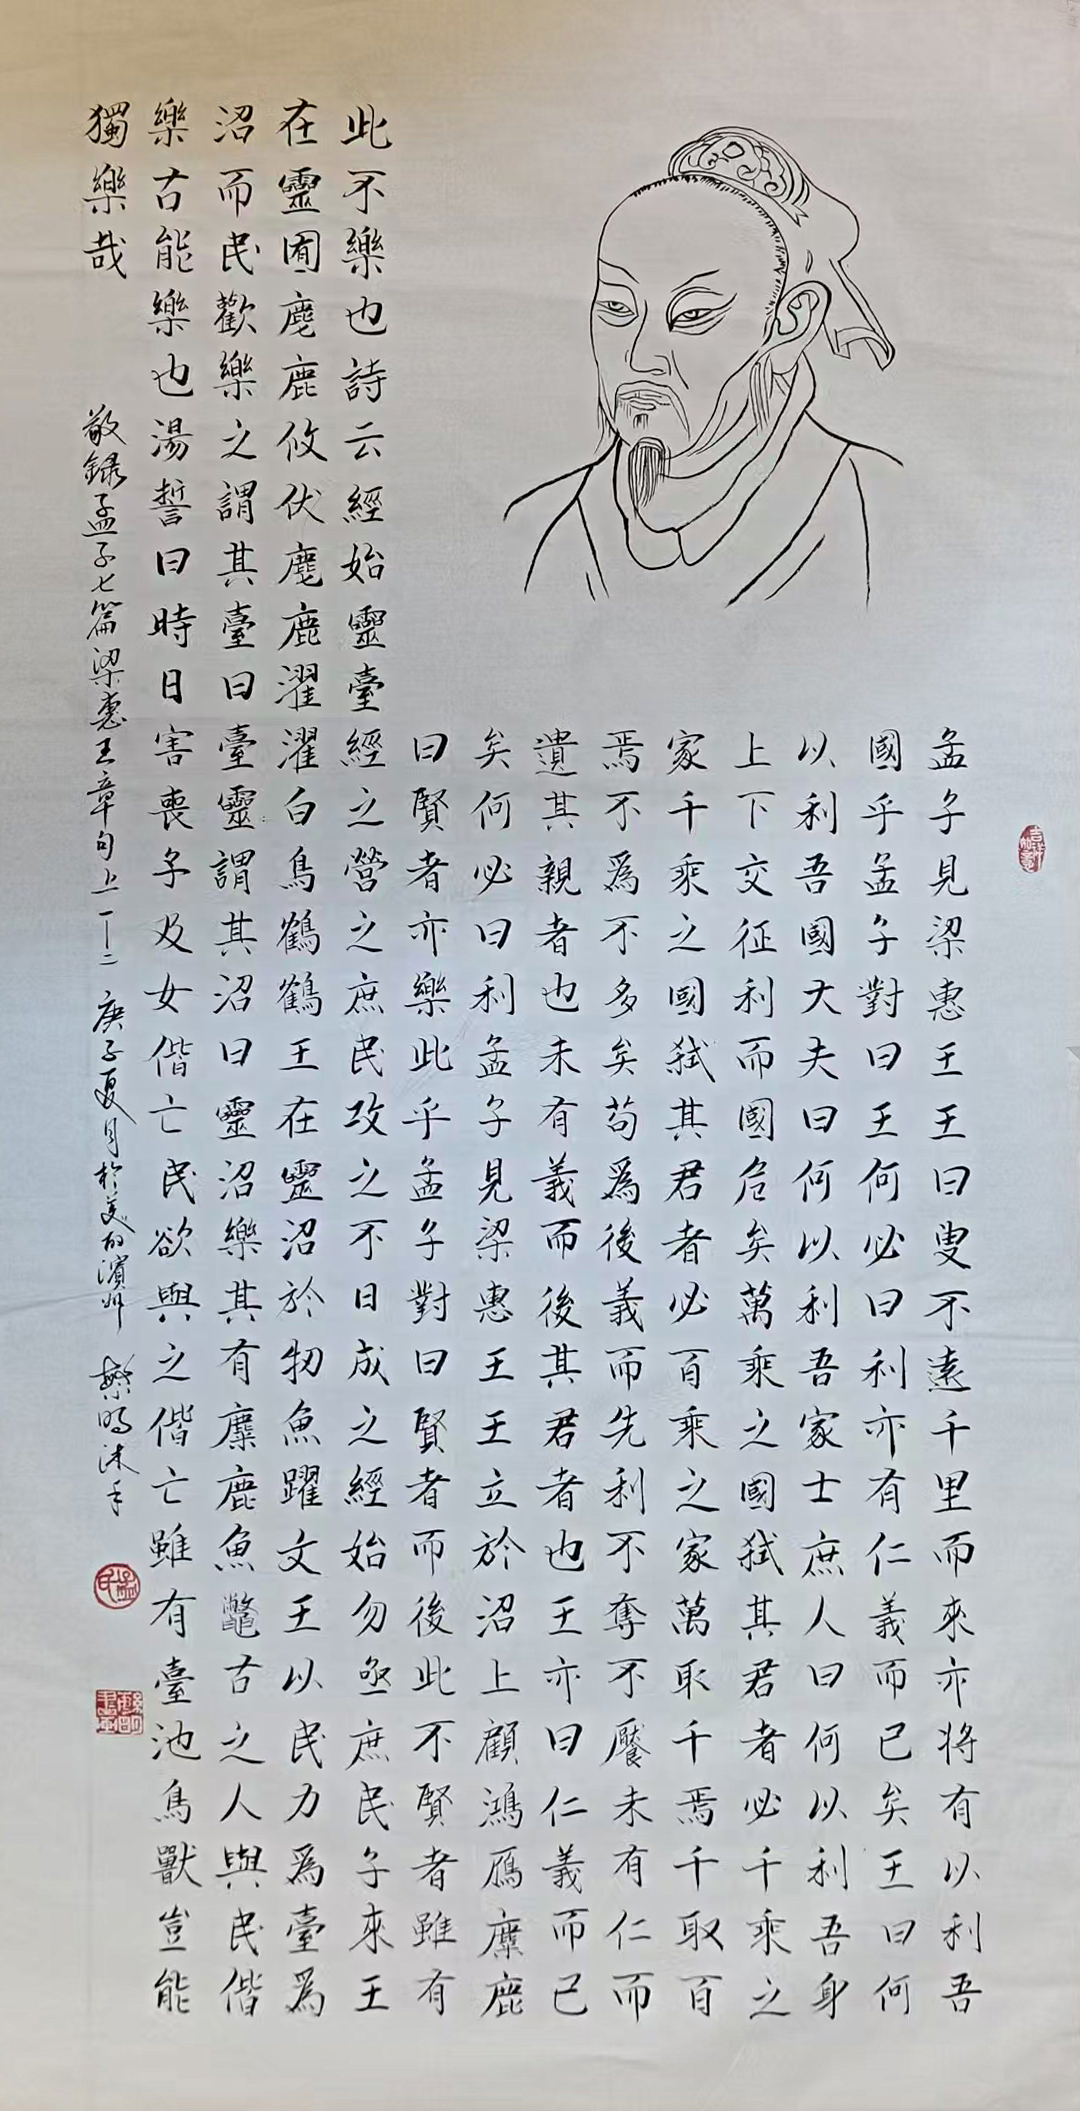 孟子見梁惠王王曰叟不遠千里而來亦將有以利吾
國乎孟子對曰王何必曰利亦有仁義而已矣王曰何
以利吾國大夫曰何以利吾家士庶人曰何以利吾身
上下交征利而國危矣萬乘之國弒其君者必千乘之
家千乘之國弒其君者必百乘之家萬取千焉千取百
焉不為不多矣苟為後義而先利不奪不饜未有仁而
遺其親者也未有義而後其君者也王亦曰仁義而已
矣何必曰利孟子見梁惠王王立於沼上顧鴻鴈麋鹿
曰賢者亦樂此乎孟子對曰賢者而後此不賢者雖有
此不樂也詩云經始靈臺經之營之庶民攻之不日成之經始勿亟庶民子來王
在靈囿麀鹿攸伏麀鹿濯濯白鳥鶴鶴王在靈沼於牣魚躍文王以民力為臺為
沼而民歡樂之謂其臺曰臺靈謂其沼曰靈沼樂其有麋鹿魚鼈古之人與民偕
樂古能樂也湯誓曰時日害喪予及女偕亡民欲與之偕亡雖有臺池鳥獸豈能
獨樂哉
敬録孟子七篇梁惠王章句上一十二 庚子夏月於美的濱州 繁鳴沐手